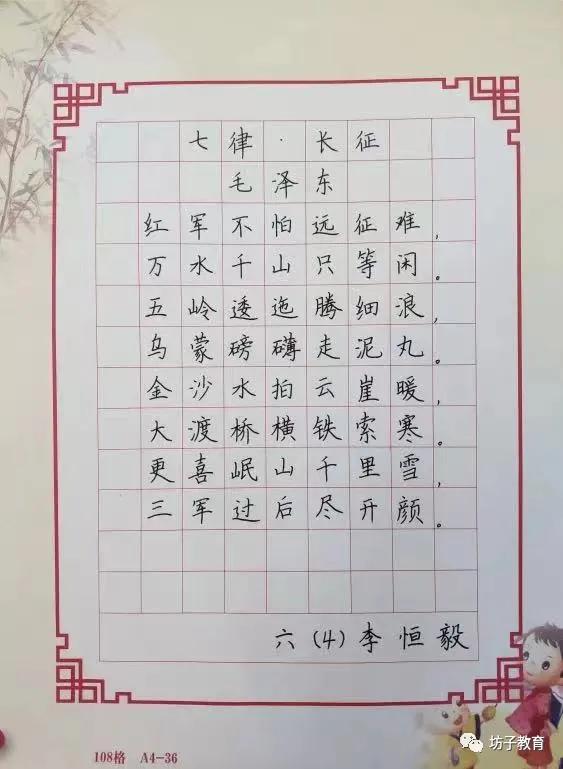 七律·长征
毛泽东
红军不怕远征难，
万水千山只等闲。
五岭逶迤腾细浪，
乌蒙磅礴走泥丸。
金沙水拍云崖暖，
大渡桥横铁索寒。
更喜岷山千里雪，
三军过后尽开颜。
六（4）李恒毅
108格 A4-36
坊子教育